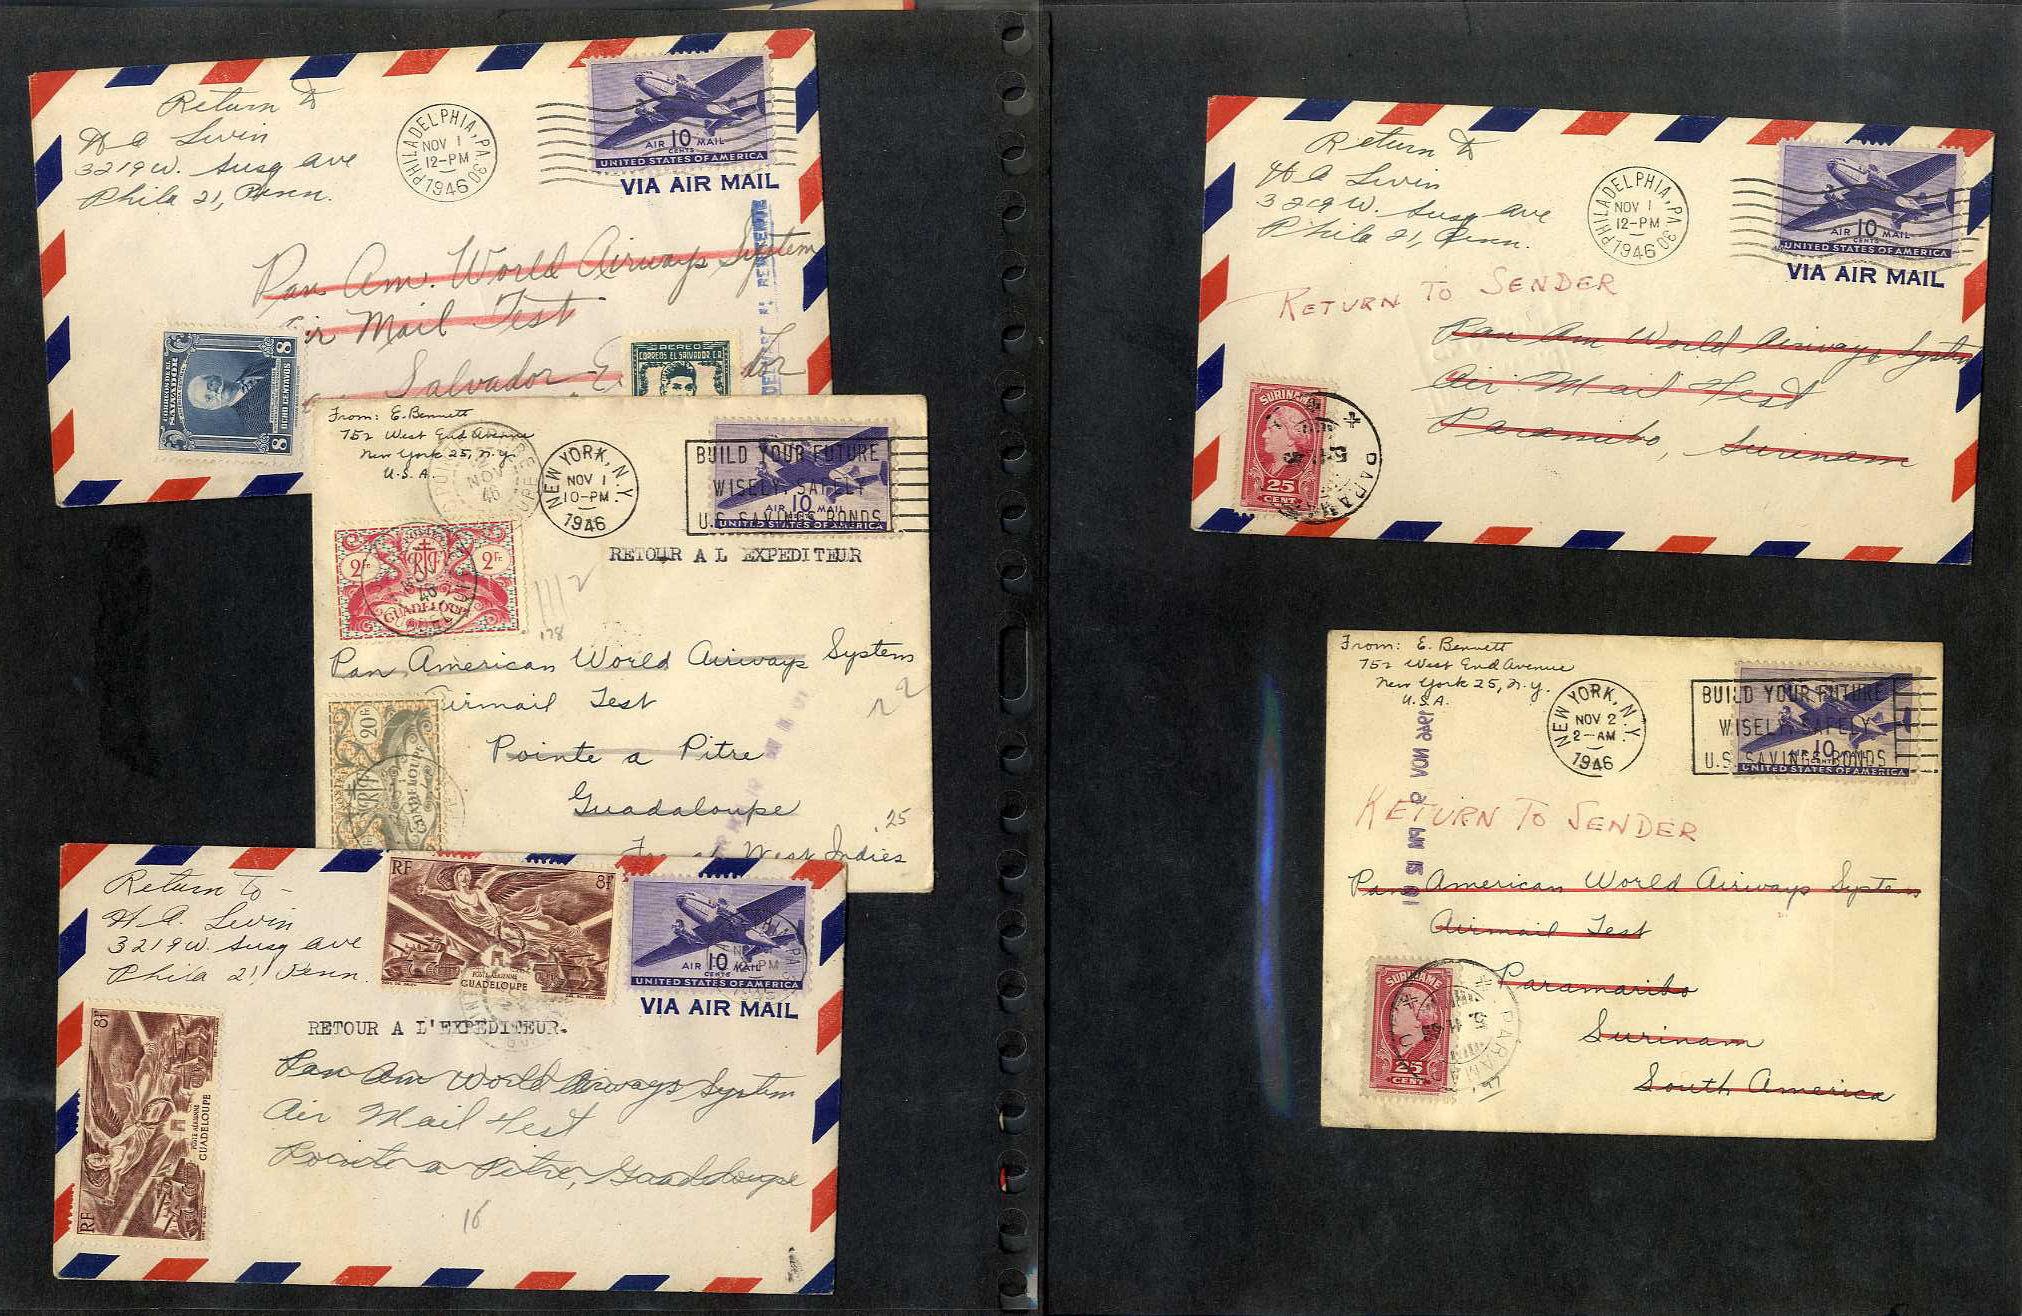 Return to
H A Levin
3219 W. Susq Ave
Phila 21, Penn.
PHILADELPHIA, PA. 30
NOV 1
12-PM
1946
AIR 10 MAIL
CENTS
UNITED STATES OF AMERICA
VIA AIR MAIL
Pan Am. World Airways System
Air Mail Test
Salvador
CORREOS DE EL
SALVADOR
OCHO CENTAVOS
8 8
AEREO
CORREOS EL SALVADOR, C.A.
From: E. Bennett
752 West End Avenue
New York 25, N.Y.
U.S.A.
NEW YORK, N.Y.
NOV 1
10-PM
1946
BUILD YOUR FUTURE
WISELY, SAFELY
U.S. SAVINGS BONDS
AIR 10 MAIL
UNITED STATES OF AMERICA
RETOUR A L EXPEDITEUR
2Fr. RF 2Fr.
GUADELOUPE
Pan American World Airways System
Airmail Test
Pointe a Pitre
Guadaloupe
West Indies
.25
20Fr.
RF
GUADELOUPE
Return to -
H A. Levin
3219 W. Susq Ave
Phila 21, Penn.
RF 8f
POSTE AÉRIENNE
GUADELOUPE
AIR 10 MAIL
CENTS
UNITED STATES OF AMERICA
VIA AIR MAIL
RF 8f
POSTE AÉRIENNE
GUADELOUPE
RETOUR A L'EXPEDITEUR.
Pan Am World Airways System
Air Mail Test
Pointe a Pitre, Guadeloupe
16
Return to
H A Levin
3219 W. Susq Ave
Phila 21, Penn.
PHILADELPHIA, PA. 30
NOV 1
12-PM
1946
AIR 10 MAIL
CENTS
UNITED STATES OF AMERICA
VIA AIR MAIL
RETURN TO SENDER
Pan Am World Airways System
Air Mail Test
Paramibo, Surinam
SURINAME
25
CENT
From: E. Bennett
752 West End Avenue
New York 25, N.Y.
U.S.A.
NEW YORK, N.Y.
NOV 2
2-AM
1946
BUILD YOUR FUTURE
WISELY, SAFELY
U.S. SAVINGS BONDS
10
UNITED STATES OF AMERICA
1946 NOV 9 PM
RETURN TO SENDER
Pan American World Airways System
Airmail Test
Paramaribo
Surinam
South America
SURINAME
25
CENT